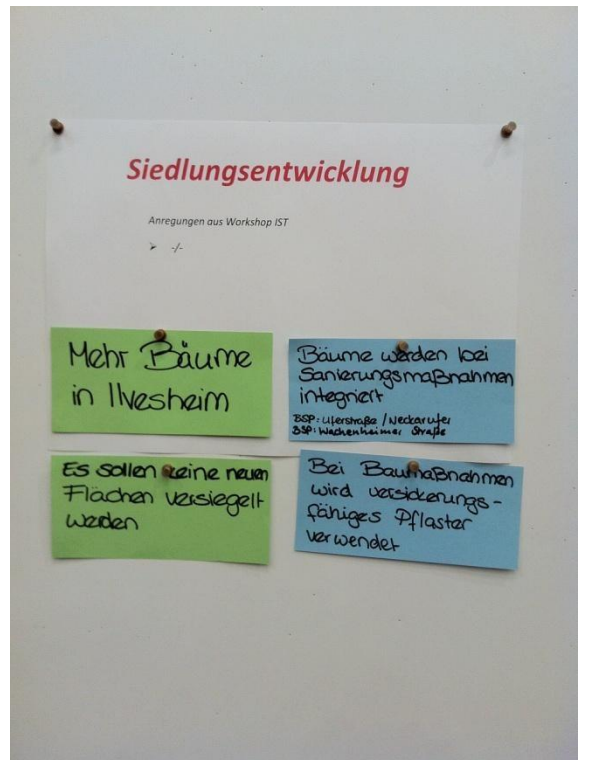 Siedlungsentwicklung
Anregungen aus Workshop IST
➢ -/-
Mehr Bäume
in Ilvesheim
Bäume werden bei
Sanierungsmaßnahmen
integriert
BSP: Uferstraße / Neckarufer
BSP: Wachenheimer Straße
Es sollen keine neuen
Flächen versiegelt
werden
Bei Baumaßnahmen
wird versickerungs-
fähiges Pflaster
verwendet